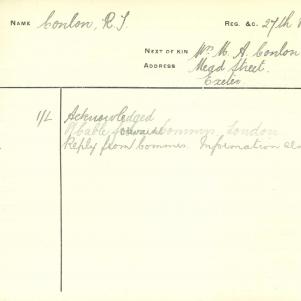 NAME Conlon, R.J. REG. &c. 27th
NEXT OF KIN Mrs. M. A. Conlon
ADDRESS Mead Street.
Exeter
1/L Acknowledged
Commrs, London
Reply from Commrs. Information